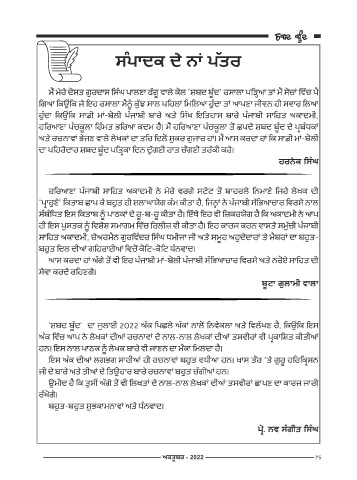 ਸ਼ਬਦ ਬੂੰਦ
ਸੰਪਾਦਕ ਦੇ ਨਾਂ ਪੱਤਰ
ਮੈਂ ਮੇਰੇ ਦੋਸਤ ਗੁਰਦਾਸ ਸਿੰਘ ਪਾਲਣਾ ਫੱਗੂ ਵਾਲੇ ਕੋਲ 'ਸ਼ਬਦ ਬੂੰਦ' ਰਸਾਲਾ ਪੜ੍ਹਿਆ ਤਾਂ ਮੈਂ ਸੋਚਾਂ ਵਿੱਚ ਪੈ
ਗਿਆ ਕਿਉਂਕਿ ਜੇ ਇਹ ਰਸਾਲਾ ਮੈਨੂੰ ਕੁੱਝ ਸਾਲ ਪਹਿਲਾਂ ਮਿਲਿਆ ਹੁੰਦਾ ਤਾਂ ਆਪਣਾ ਜੀਵਨ ਹੀ ਸਵਾਰ ਲਿਆ
ਹੁੰਦਾ ਕਿਉਂਕਿ ਸਾਡੀ ਮਾਂ-ਬੋਲੀ ਪੰਜਾਬੀ ਬਾਰੇ ਅਤੇ ਸਿੱਖ ਇਤਿਹਾਸ ਬਾਰੇ ਪੰਜਾਬੀ ਸਾਹਿਤ ਅਕਾਦਮੀ,
ਹਰਿਆਣਾ ਪੰਚਕੂਲਾ ਹਿੰਮਤ ਭਰਿਆ ਕਦਮ ਹੈ। ਮੈਂ ਹਰਿਆਣਾ ਪੰਚਕੂਲਾ ਤੋਂ ਛਪਦੇ ਸ਼ਬਦ ਬੂੰਦ ਦੇ ਪ੍ਰਬੰਧਕਾਂ
ਅਤੇ ਰਚਨਾਵਾਂ ਭੇਜਣ ਵਾਲੇ ਲੇਖਕਾਂ ਦਾ ਤਹਿ ਦਿਲੋਂ ਸ਼ੁਕਰ ਗੁਜਾਰ ਹਾਂ। ਮੈਂ ਆਸ ਕਰਦਾ ਹਾਂ ਕਿ ਸਾਡੀ ਮਾਂ-ਬੋਲੀ
ਦਾ ਪਹਿਰੇਦਾਰ ਸ਼ਬਦ ਬੂੰਦ ਪਤ੍ਰਿਕਾ ਦਿਨ ਦੁੱਗਣੀ ਰਾਤ ਚੌਗਣੀ ਤਰੱਕੀ ਕਰੇ।
ਹਰਨੇਕ ਸਿੰਘ
ਹਰਿਆਣਾ ਪੰਜਾਬੀ ਸਾਹਿਤ ਅਕਾਦਮੀ ਨੇ ਮੇਰੇ ਵਰਗੇ ਸਟੇਟ ਤੋਂ ਬਾਹਰਲੇ ਨਿਮਾਣੇ ਜਿਹੇ ਲੇਖਕ ਦੀ
ਕਿਤਾਬ ਛਾਪ ਕੇ ਬਹੁਤ ਹੀ ਸ਼ਲਾਘਾਯੋਗ ਕੰਮ ਕੀਤਾ ਹੈ, ਜਿਨ੍ਹਾਂ ਨੇ ਪੰਜਾਬੀ ਸੱਭਿਆਚਾਰ ਵਿਰਸੇ ਨਾਲ
ਸੰਬੰਧਿਤ ਇਸ ਕਿਤਾਬ ਨੂੰ ਪਾਠਕਾਂ ਦੇ ਰੂ-ਬ-ਰੂ ਕੀਤਾ ਹੈ। ਇੱਥੇ ਇਹ ਵੀ ਜ਼ਿਕਰਯੋਗ ਹੈ ਕਿ ਅਕਾਦਮੀ ਨੇ ਆਪ
ਹੀ ਇਸ ਪੁਸਤਕ ਨੂੰ ਵਿਸ਼ੇਸ਼ ਸਮਾਗਮ ਵਿੱਚ ਰਿਲੀਜ਼ ਵੀ ਕੀਤਾ ਹੈ। ਇਹ ਕਾਰਜ ਕਰਨ ਵਾਸਤੇ ਸਮੁੱਚੀ ਪੰਜਾਬੀ
ਸਾਹਿਤ ਅਕਾਦਮੀ, ਚੇਅਰਮੈਨ ਗੁਰਵਿੰਦਰ ਸਿੰਘ ਧਮੀਜਾ ਜੀ ਅਤੇ ਸਮੂਹ ਅਹੁਦੇਦਾਰਾਂ ਤੇ ਮੈਂਬਰਾਂ ਦਾ ਬਹੁਤ-
ਬਹੁਤ ਦਿਲ ਦੀਆਂ ਗਹਿਰਾਈਆਂ ਵਿਚੋਂ ਕੋਟਿ-ਕੋਟਿ ਧੰਨਵਾਦ।
ਆਸ ਕਰਦਾ ਹਾਂ ਅੱਗੇ ਤੋਂ ਵੀ ਇਹ ਪੰਜਾਬੀ ਮਾਂ-ਬੋਲੀ ਪੰਜਾਬੀ ਸੱਭਿਆਚਾਰ ਵਿਰਸੇ ਅਤੇ ਨਰੋਏ ਸਾਹਿਤ ਦੀ
ਸੇਵਾ ਕਰਦੇ ਰਹਿਣਗੇ।
ਬੂਟਾ ਗੁਲਾਮੀ ਵਾਲਾ
'ਸ਼ਬਦ ਬੂੰਦ' ਦਾ ਜੁਲਾਈ 2022 ਅੰਕ ਪਿਛਲੇ ਅੰਕਾਂ ਨਾਲੋਂ ਨਿਵੇਕਲਾ ਅਤੇ ਵਿਲੱਖਣ ਹੈ, ਕਿਉਂਕਿ ਇਸ
ਅੰਕ ਵਿੱਚ ਆਪ ਨੇ ਲੇਖਕਾਂ ਦੀਆਂ ਰਚਨਾਵਾਂ ਦੇ ਨਾਲ-ਨਾਲ ਲੇਖਕਾਂ ਦੀਆਂ ਤਸਵੀਰਾਂ ਵੀ ਪ੍ਰਕਾਸ਼ਿਤ ਕੀਤੀਆਂ
ਹਨ। ਇਸ ਨਾਲ ਪਾਠਕ ਨੂੰ ਲੇਖਕ ਬਾਰੇ ਵੀ ਜਾਣਨ ਦਾ ਮੌਕਾ ਮਿਲਦਾ ਹੈ।
ਇਸ ਅੰਕ ਦੀਆਂ ਲਗਭਗ ਸਾਰੀਆਂ ਹੀ ਰਚਨਾਵਾਂ ਬਹੁਤ ਵਧੀਆ ਹਨ। ਖਾਸ ਤੌਰ 'ਤੇ ਗੁਰੂ ਹਰਿਕ੍ਰਿਸ਼ਨ
ਜੀ ਦੇ ਬਾਰੇ ਅਤੇ ਤੀਆਂ ਦੇ ਤਿਉਹਾਰ ਬਾਰੇ ਰਚਨਾਵਾਂ ਬਹੁਤ ਚੰਗੀਆਂ ਹਨ।
ਉਮੀਦ ਹੈ ਕਿ ਤੁਸੀਂ ਅੱਗੇ ਤੋਂ ਵੀ ਲਿਖਤਾਂ ਦੇ ਨਾਲ-ਨਾਲ ਲੇਖਕਾਂ ਦੀਆਂ ਤਸਵੀਰਾਂ ਛਾਪਣ ਦਾ ਕਾਰਜ ਜਾਰੀ
ਰੱਖੋਗੇ।
ਬਹੁਤ-ਬਹੁਤ ਸ਼ੁਭਕਾਮਨਾਵਾਂ ਅਤੇ ਧੰਨਵਾਦ।
ਪ੍ਰੋ. ਨਵ ਸੰਗੀਤ ਸਿੰਘ
ਅਕਤੂਬਰ - 2022
75